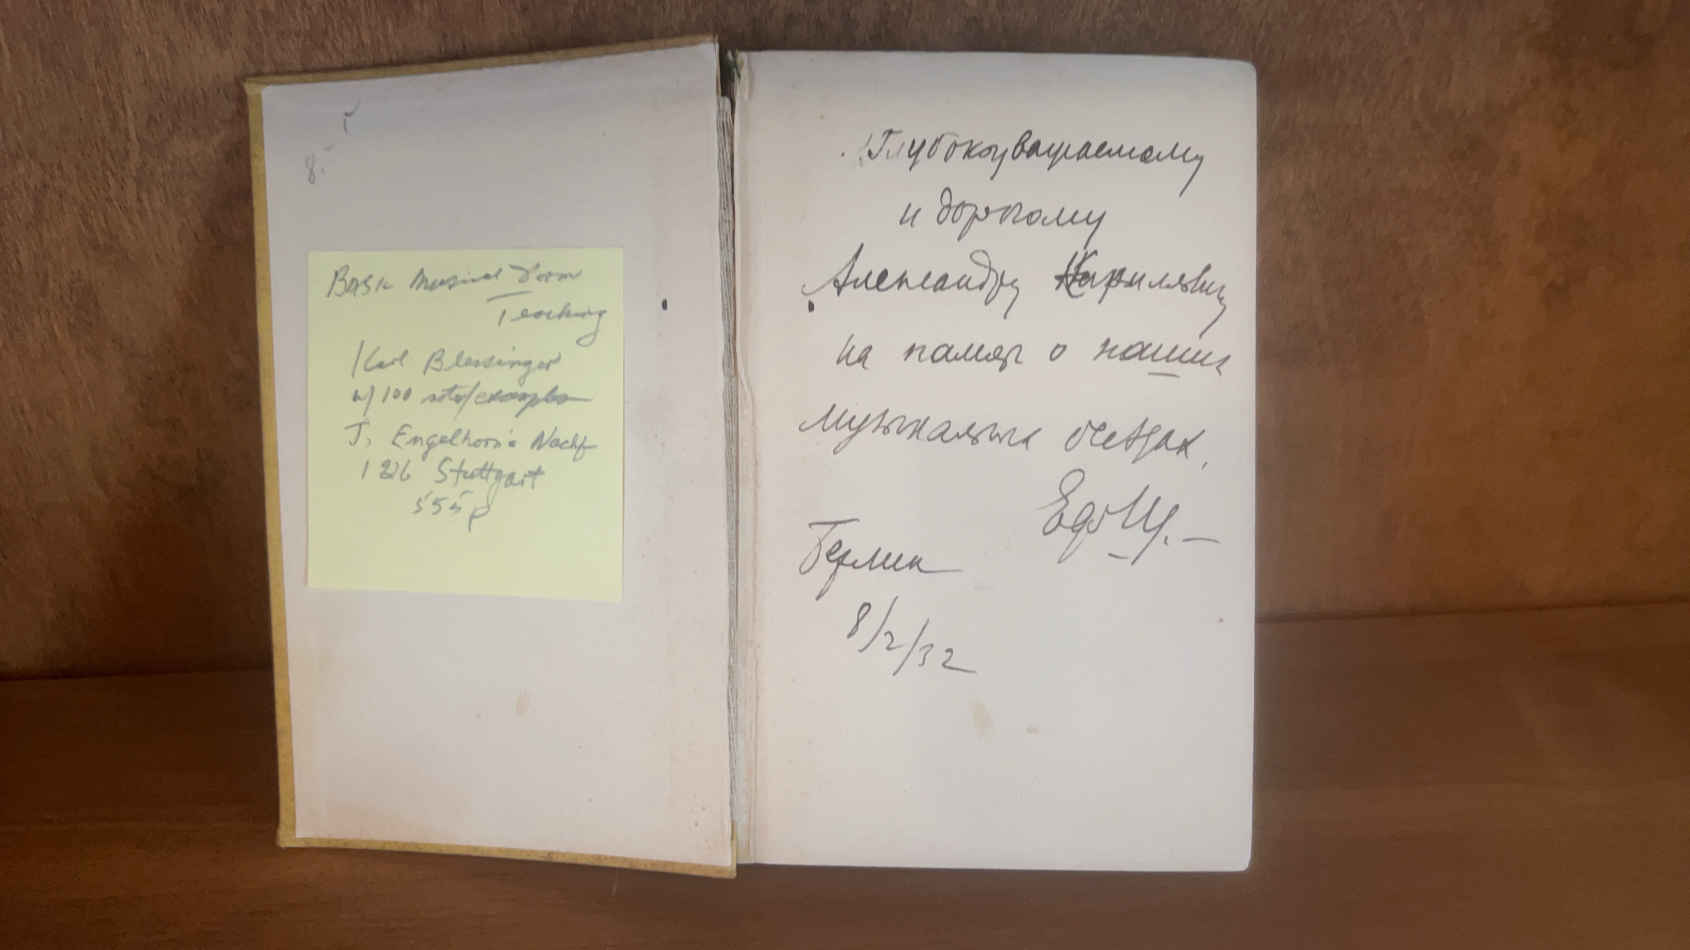 8.-
Basic Musical Form
Teaching
Karl Blessinger
w/ 100 note/examples
J. Engelhorn's Nachf
1926 Stuttgart
355 p
Глубокоуважаемому
и дорогому
Александру Кирилловичу
на память о наших
музыкальных беседах.
Берлин
8/2/32